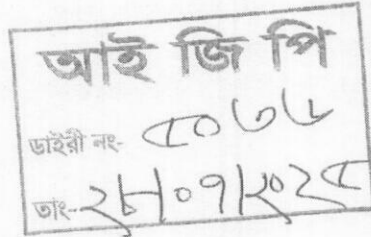 আই জি পি
ডাইরী নং-
তাং- ২৮/০৭/২০২৫